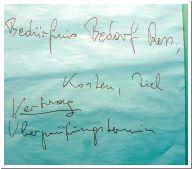 Bedürfnis Bedarf Ress.,
Kosten, Ziel
Vertrag
Überprüfungstermin